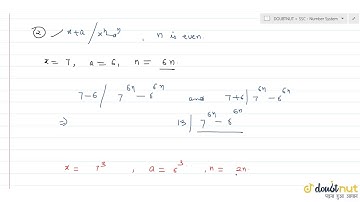 DOUBTNUT > SSC : Number System
② x+a / xⁿ-aⁿ , n is even.
x = 7, a = 6, n = 6n.
7-6 / 7^6n - 6^6n and 7+6 | 7^6n - 6^6n
⇒ 13 | 7^6n - 6^6n
x = 7^3 , a = 6^3 , n = 2n.
doubtnut